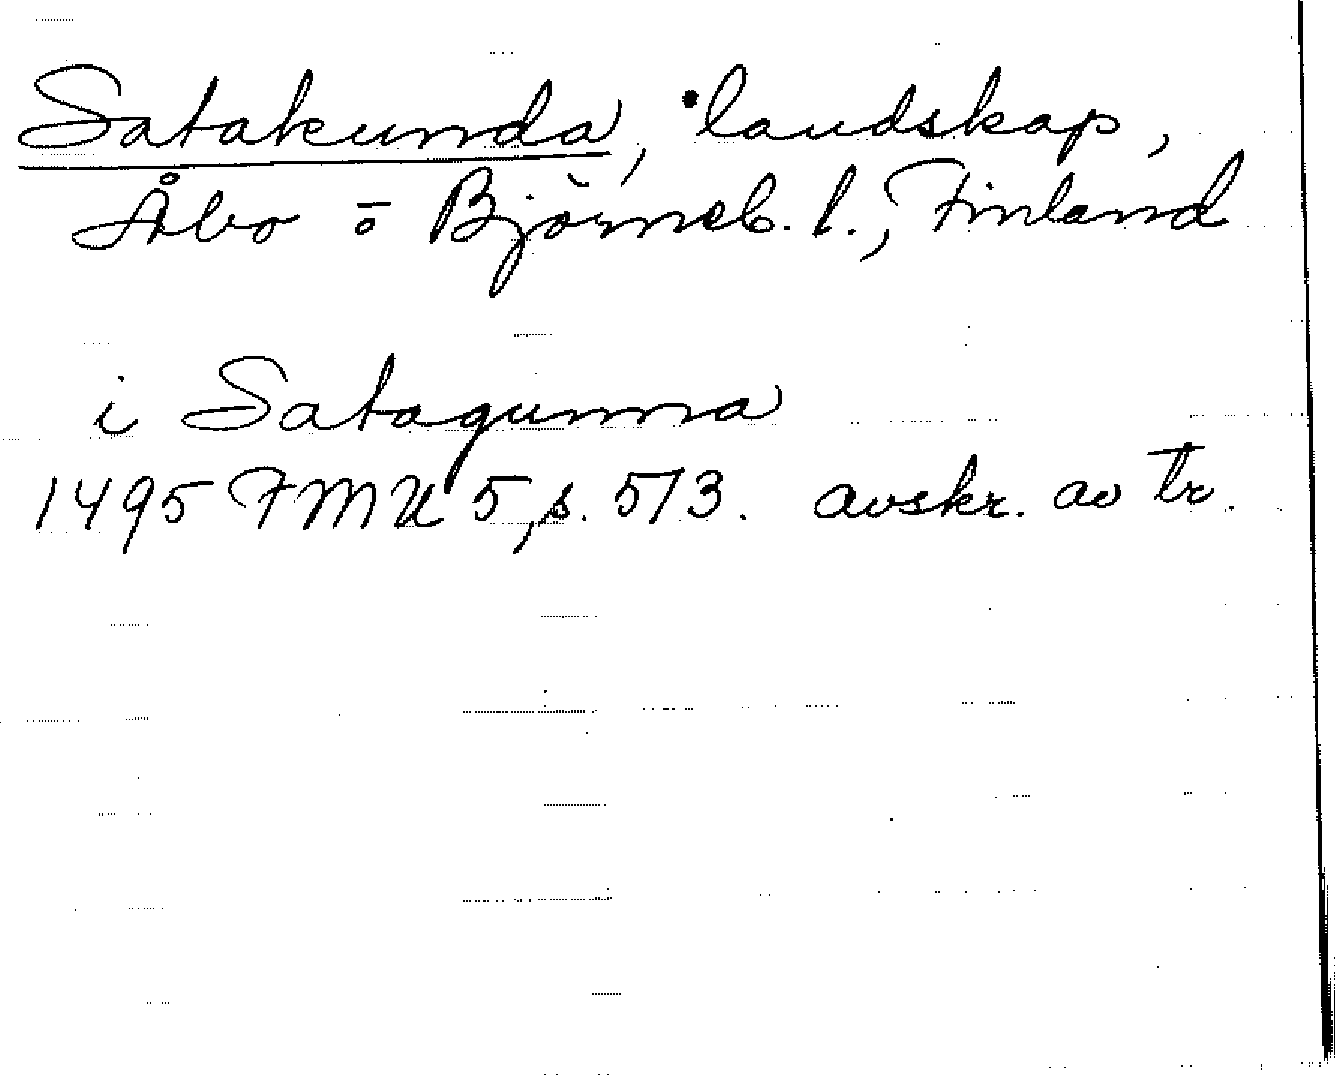 Satakunda, landskap,
Åbo o Björneb. l., Finland
i Satagunna
1495 FMU 5, s. 573. avskr. av tr.